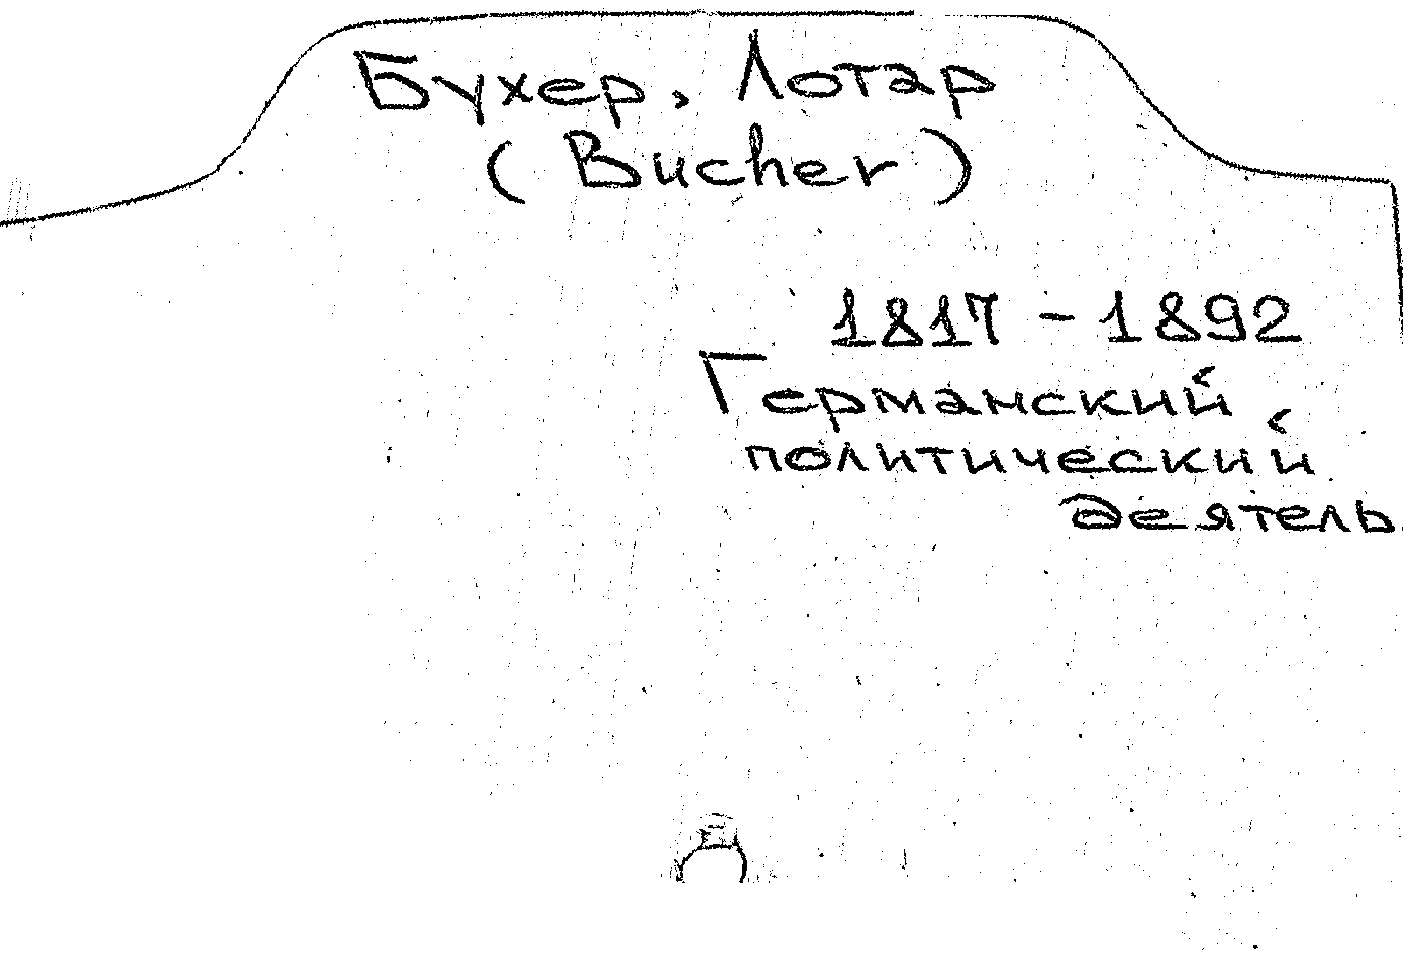 Бухер, Лотар
(Bucher)
1817 - 1892
Германский
политический
деятель